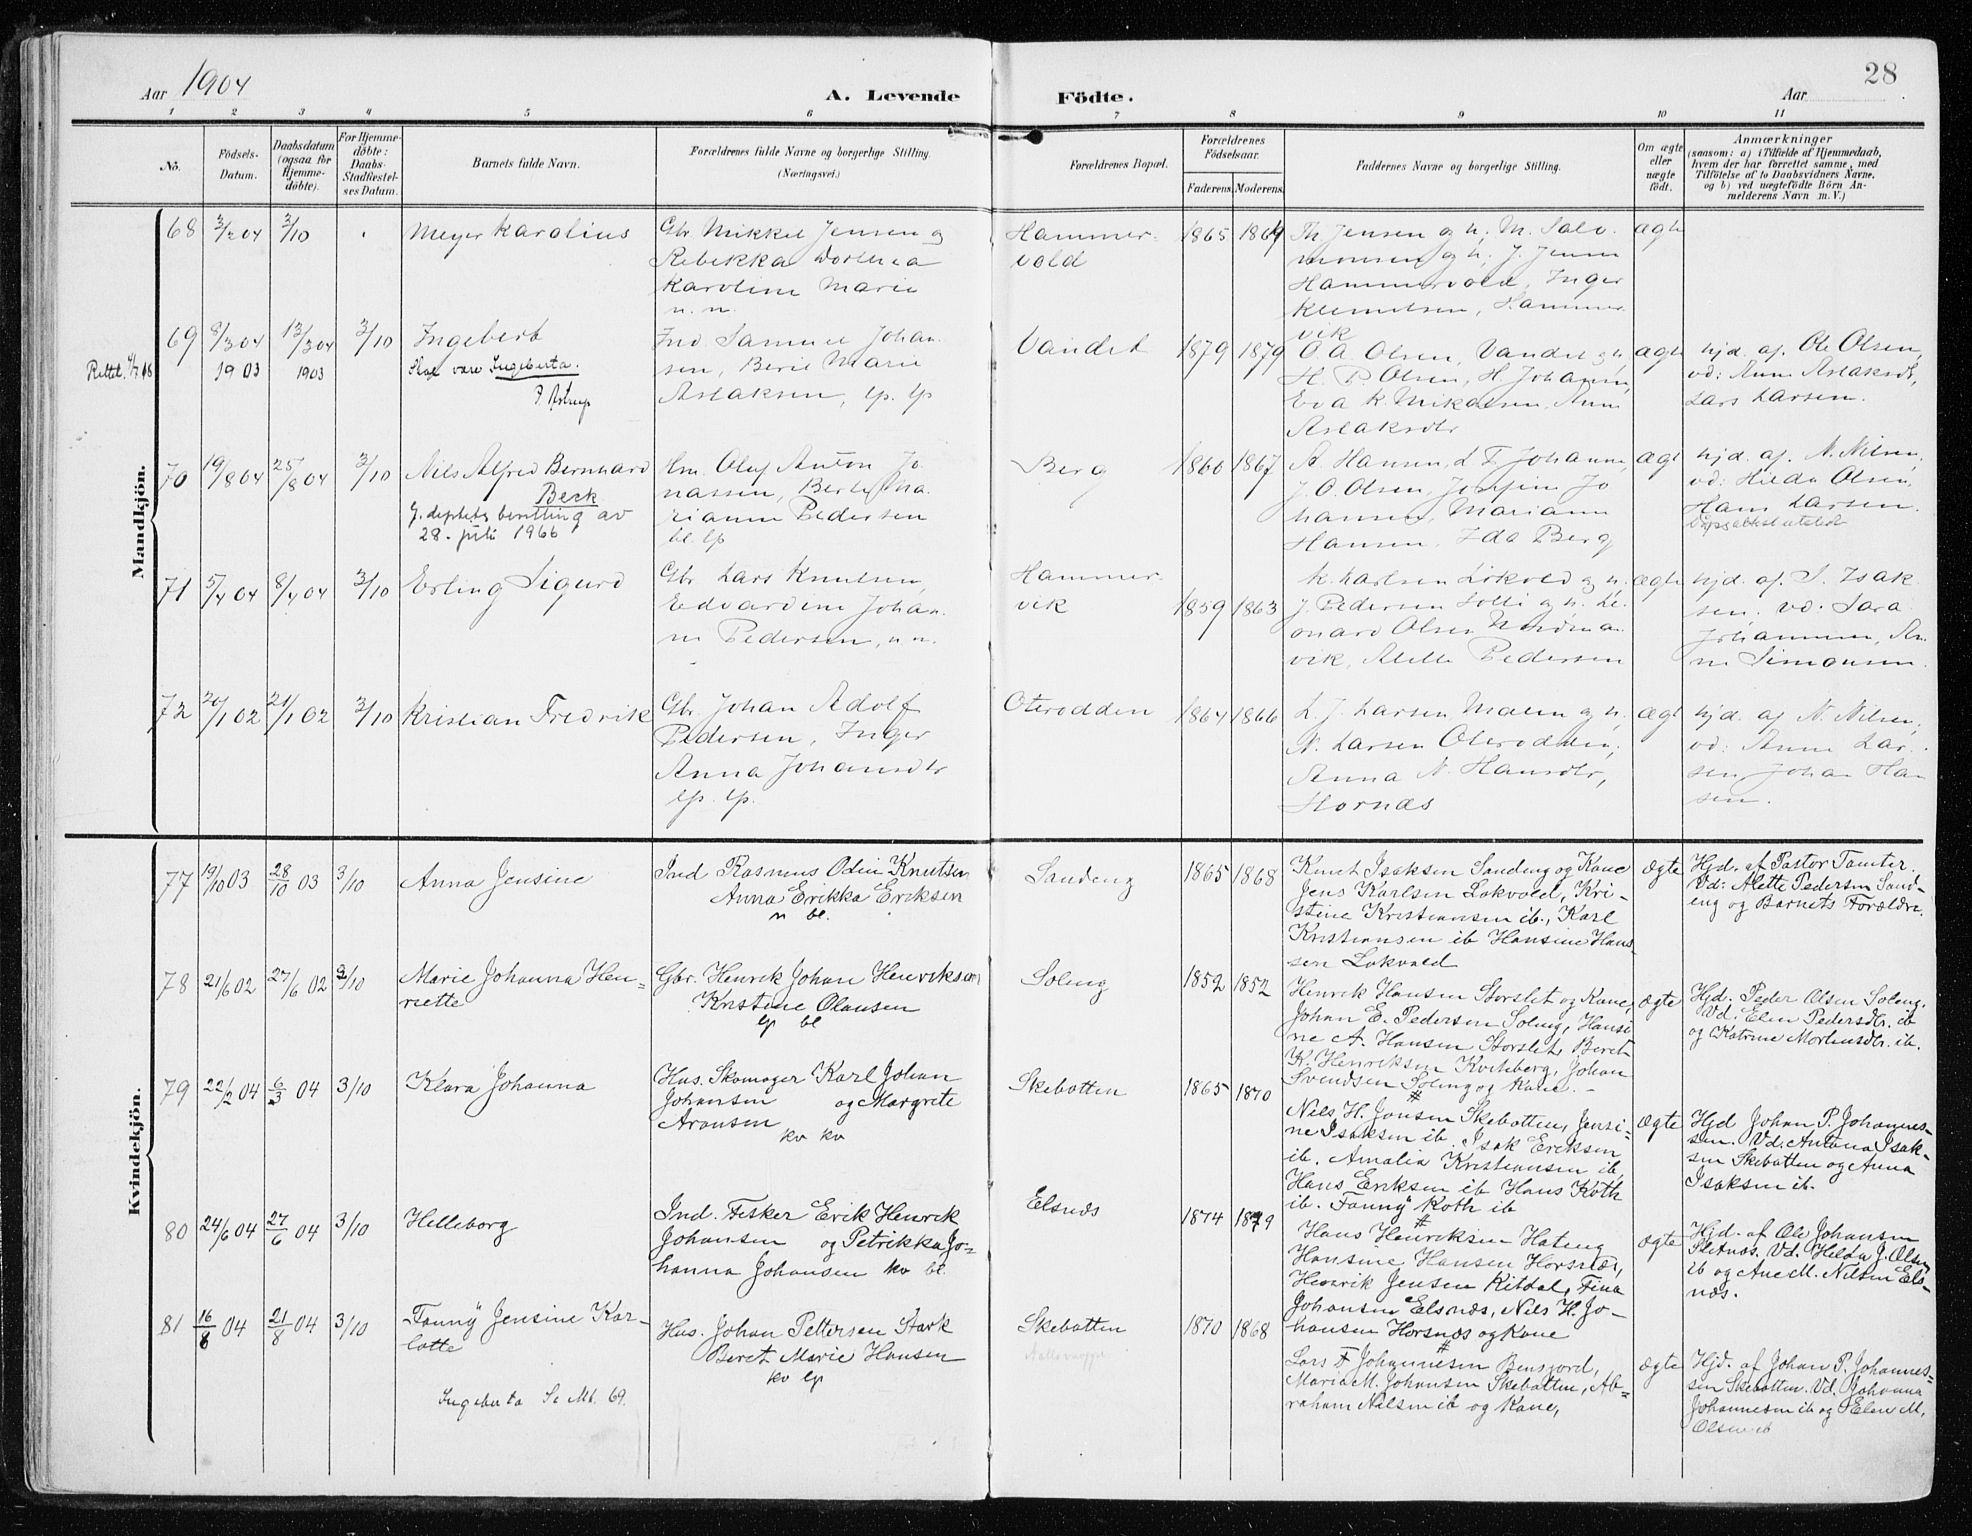 28
Aar 1904
A. Levende
Födte.
Aar
1 2 3 4 5 6 7 8 9 10 11
No.
Födsels-
Datum.
Daabsdatum
(ogsaa for
Hjemme-
döbte).
For Hjemme-
döbte:
Daabs-
Stadfæstel-
ses Datum.
Barnets fulde Navn.
Forældrenes fulde Navne og borgerlige Stilling.
(Næringsvei.)
Forældrenes Bopæl.
Forældrenes
Födselsaar.
Faderens. Moderens.
Faddernes Navne og borgerlige Stilling.
Om ægte
eller
uægte
födt.
Anmærkninger
(saasom: a) i Tilfælde af Hjemmedaab,
hvem der har forrettet samme, med
Tilföielse af to Daabsvidners Navne,
og b) ved uægtefödte Börn An-
melderens Navn m. V.)
Mandkjön.
68 3/2 04 3/10 Meyer Karolius
Gbr Mikkel Jensen og
Rebekka Dorthea
Karoline Marie
n. n.
Hammer-
vold
1865 1864
Th. Jensen og h. M. Salo-
monsen og h. J. Jensen
Hammervold, Inger
Klemetsen, Hammer
vik
ægte
69 8/3 04 13/3 04 3/10 Ingebert
1903 1903
Skal være Ingeberta.
P. Astrup
Ind Samuel Johan
sen, Berit Marie
Aslaksen, lp. lp
Vandet
1879 1879
O. A. Olsen, Vandet og h,
H. P. Olsen, H. Johansen,
Eva K. Mikalsen, Anne
Aslaksdtr
ægte
hjd. af. Ole Olsen,
vd: Anne Aslaksdtr,
Lars Larsen.
70 19/8 04 25/8 04 3/10 Nils Alfred Bernhard
Beck
J. deptets bevilling av
28. juli 1966
Hm. Oluf Anton Jo
nassen, Berte Ma
rianne Pedersen
bl. lp
Berg
1860 1867
A. Hansen, L. T. Johanne,
J. O. Olsen, Josefine Jo
hansen, Marianne
Hansen, Ida Berg
ægt
hjd. af. N. Nilsen,
vd: Hilda Olsen,
Hans Larsen.
71 5/4 04 8/4 04 3/10 Erling Sigurd
Gbr Lars Knutsen,
Edvardine Johan
ne Pedersen, n. n.
Hammer-
vik
1859 1863
K. Karlsen Lökvold og h.
J. Pedersen Solli og h. Le-
onard Olsen Nordman
vik, Alette Pedersen
ægte
hjd. af. S. Isak
sen, vd. Sara
Johannesen, An
ne Simonsen.
72 20/1 02 21/1 02 3/10 Kristian Fredrik
Gbr Johan Adolf
Pedersen, Inger
Anna Johansdtr
lp. lp.
Oterodden
1864 1866
L. J. Larsen Malen og h,
N. Larsen Oterodden,
Anna N. Hansdtr,
Hornæs
ægt
hjd. af N. Nilsen,
vd: Anne Lar-
sen Johan Han
sen.
Kvindekjön.
77 19/10 03 28/10 03 3/10 Anna Jensine
Ind Rasmus Odin Knutsen
Anna Erikka Eriksen
n bl.
Sandeng
1865 1868
Knut Isaksen Sandeng og Kone
Jens Karlsen Lökvold, Kri-
stine Kristiansen ib., Karl
Kristiansen ib Hansine Han-
sen Lökvold
ægte
Hjd. af Pastor Tandter.
Vd: Alette Pedersen Sand-
eng og Barnets Forældre.
78 21/6 02 27/6 02 3/10 Marie Johanna Hen-
riette
Gbr. Henrik Johan Henriksen
Kristine Olausen
lp bl
Soleng
1852 1852
Henrik Hansen Storslet og Kone,
Johan E. Pedersen Soleng, Hansi
ne A. Hansen Storslet, Beret
K. Henriksen Kvitberg, Johan
Svendsen Soleng og Kone.
ægte
Hjd. Peder Olsen Soleng.
Vd: Elen Pedersdtr. ib
og Katrine Mortensdtr. ib.
79 22/2 04 6/3 04 3/10 Klara Johanna
Hus. Skomager Karl Johan
Johansen og Margrete
Aronsen
kv kv
Skebotten
1865 1870
Nils H. Jonsen Skebotten, Jensi-
ne Isaksen ib. Isak Eriksen
ib. Amalia Kristiansen ib,
Hans Eriksen ib Hans Koth
ib. Fanny Koth ib
ægte
Hjd Johan P. Johannes-
sen. Vd. Antona Isak-
sen Skebotten og Anna
Isaksen ib.
80 24/6 04 27/6 04 3/10 Helleborg
Ind. Fisker Erik Henrik
Johansen og Petrikka Jo-
hanna Johansen kv bl.
Elsnæs
1874 1879
Hans Henriksen Hateng
Hansine Hansen Horsnæs,
Henrik Jensen Kitdal, Fina
Johansen Elsnæs, Nils H. Jo-
hansen Horsnæs og Kone
ægte
Hjd. af Ole Johansen
Sletnæs. Vd. Helda J. Olsen
ib og Ane M. Nilsen Els-
næs.
81 16/8 04 21/8 04 3/10 Fanny Jensine Kar-
lotte
Hus. Johan Pettersen Stark
Beret Marie Hansen
kv lp
Skebotten
1870 1868
Lars F Johannesen Bensjord,
Maria M. Johansen Skebotten, Ab-
raham Nilsen ib og Kone,
ægte
Hjd. af Johan P. Johannes-
sen Skebotten. Vd. Johanna
Johannesen ib og Elen M.
Olsen ib
Ingeberta Se Mk. 69.